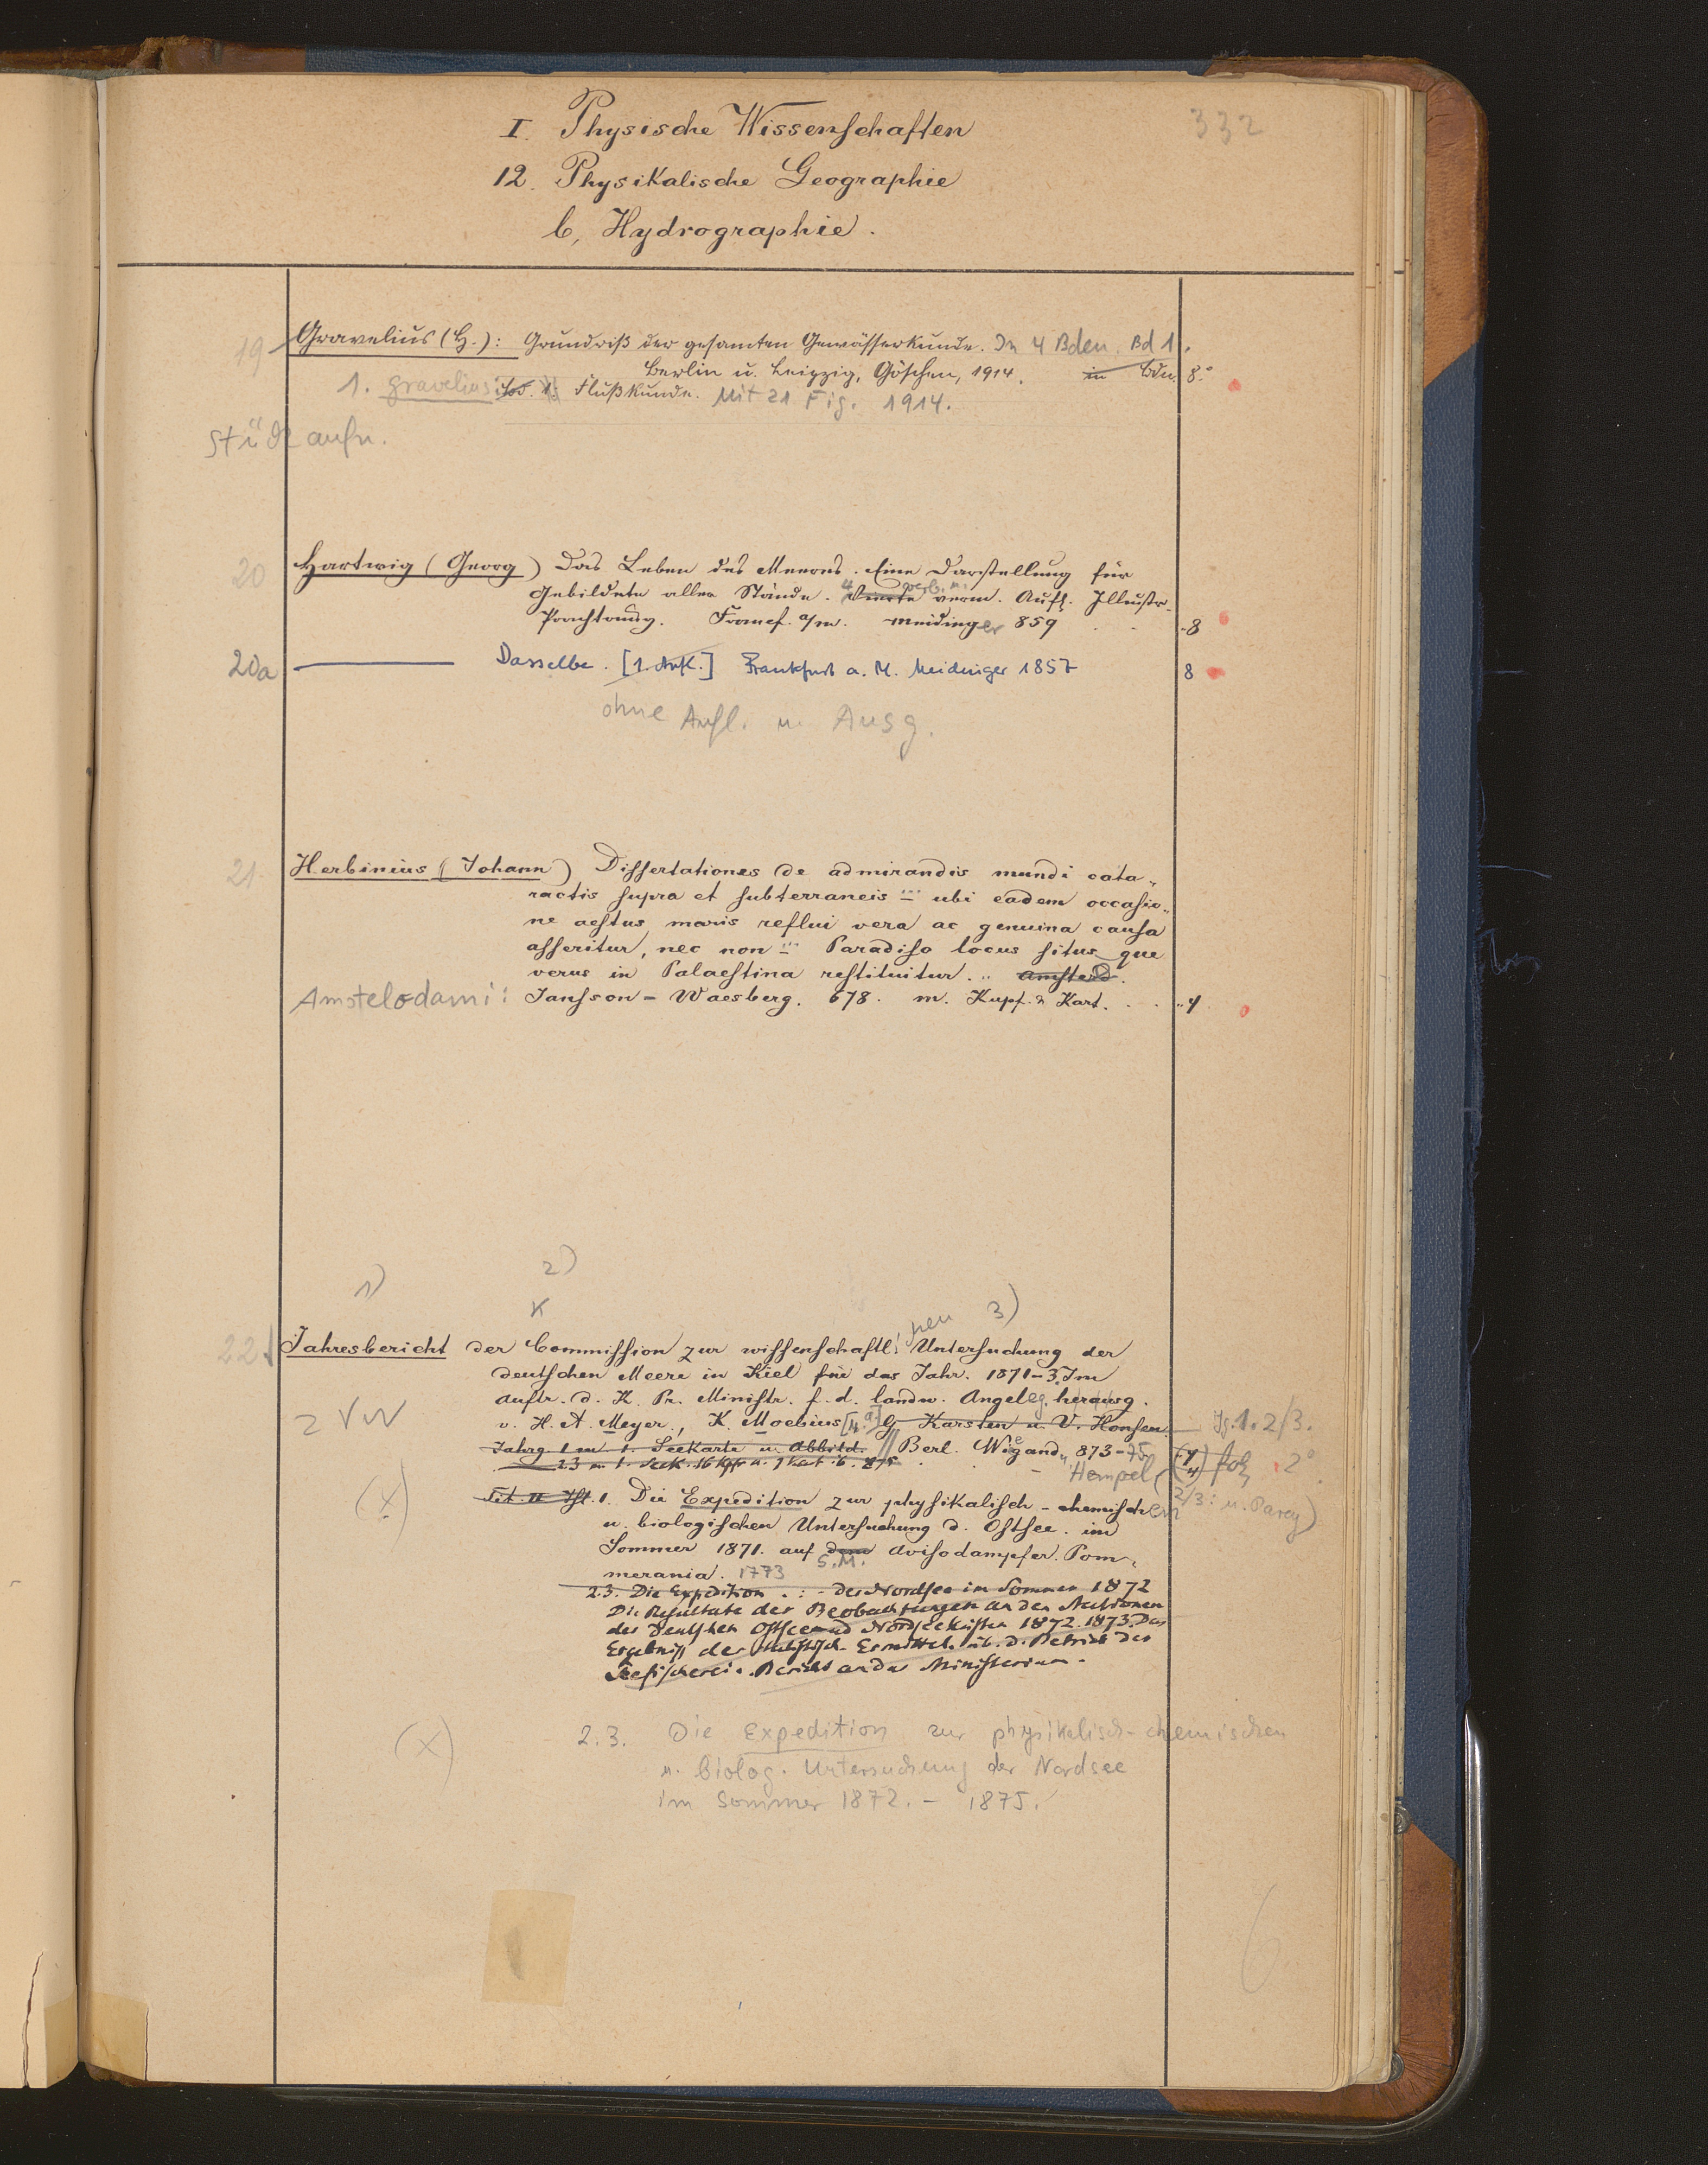 332
I. Physische Wissenschaften
12. Physikalische Geographie
b, Hydrographie.
19 Gravelius (H.): Grundriß der gesamten Gewässerkunde. In 4 Bden. Bd 1.
Berlin u. Leipzig, Göschen, 1914. in Bdn. 8.°
1. Gravelius: Bd. 1. Flußkunde. Mit 21 Fig. 1914.
Stück aufn.
20 Hartwig (Georg) Das Leben des Meeres. Eine Darstellung für
Gebildete aller Stände. 4 Vierte verb. u. verm. Aufl. Illustr.
Prachtausg. Francf. a/m. Meidinger 859 . . 8
20a Dasselbe. [1. Aufl.] Frankfurt a. M. Meidinger 1857 8
ohne Aufl. u. Ausg.
21. Herbinius (Johann) Dissertationes de admirandis mundi cata-
ractis supra et subterraneis ... ubi eadem occasio-
ne aestus maris reflui vera ac genuina causa
asseritur, nec non ... Paradiso locus situs que
verus in Palaestina restituitur. .. Amsterd.
Amstelodami: Jansson-Waesberg. 678. m. Kupf. & Kart. . . 4
1) 2)
x 3)
22. Jahresbericht der Commission zur wissenschaftl. hen Untersuchung der
deutschen Meere in Kiel für das Jahr. 1871-3. Im
Auftr. d. K. Pr. Ministr. f. d. landw. Angeleg. herausg.
2 VW v. H. A. Meyer, K. Moebius [u. a.] G. Karsten u. V. Hensen. Jg. 1. 2/3.
Jahrg. 1 m 1. Seekarte u. Abbild. // Berl. Wiegand, 873-75
2.3 m. 1. Seek. 16 Kpfr u. 1 Kart. 6. 875 Hempel (4) fol. 2°
2/3: u. Parey)
(x) Tit. 1. Die Expedition zur physikalisch-chemischen
u. biologischen Untersuchung d. Ostsee im
Sommer 1871. auf dem S.M. Avisodampfer Pom-
merania. 1773
2.3. Die Expedition . : - der Nordsee im Sommer 1872
Die Resultate der Beobachtungen an den Stationen
der Deutschen Ostsee und Nordseeküsten 1872. 1873. Das
Ergebniß der statistisch. Ermittel. üb. d. Betrieb der
Seefischerei. Bericht an das Ministerium.
(x) 2.3. Die Expedition zur physikalisch-chemischen
u. biolog. Untersuchung der Nordsee
im Sommer 1872. - 1875.
6